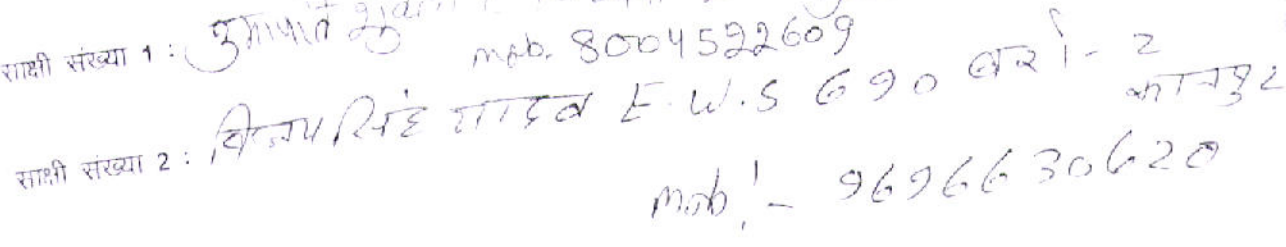 साक्षी संख्या 1 :
mob. 8004522609
साक्षी संख्या 2 : विजय सिंह यादव E.W.S 690 बर्रा - 2
कानपुर
mob :- 9696630620